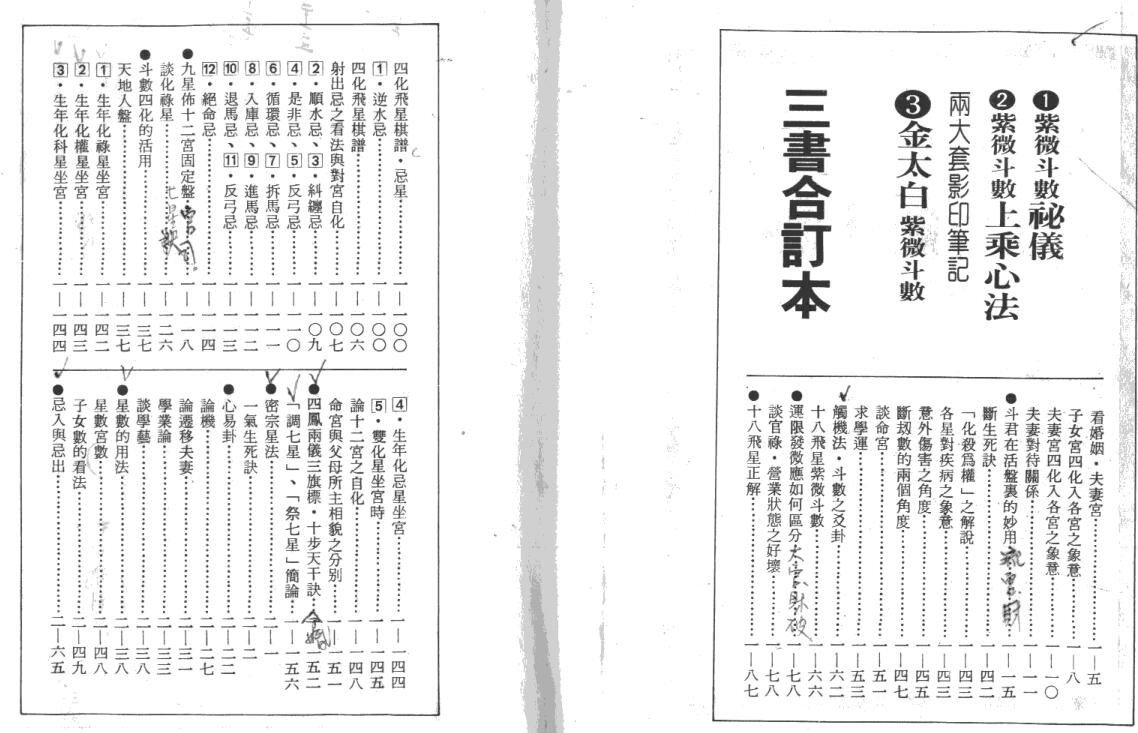 ❶紫微斗數祕儀
❷紫微斗數上乘心法
兩大套影印筆記
❸金太白紫微斗數
三書合訂本
看婚姻・夫妻宮……一—五
子女宮四化入各宮之象意……一—八
夫妻宮四化入各宮之象意……一—一〇
夫妻對待關係……一—一一
●斗君在活盤裏的妙用……一—一五
斷生死訣……一—四二
「化殺爲權」之解說……一—四三
各星對疾病之象意……一—四三
意外傷害之角度……一—四五
斷刼數的兩個角度……一—四七
談命宮……一—五一
求學運……一—五三
觸機法・斗數之爻卦……一—六二
十八飛星紫微斗數……一—六六
●運限發微應如何區分……一—七八
談官祿・營業狀態之好壞……一—七八
●十八飛星正解……一—八七
四化飛星棋譜・忌星……一—一〇〇
1・逆水忌……一—一〇〇
四化飛星棋譜……一—一〇六
射出忌之看法與對宮自化……一—一〇七
2・順水忌、3・糾纏忌……一—一〇九
4・是非忌、5・反弓忌……一—一一〇
6・循環忌、7・拆馬忌……一—一一一
8・入庫忌、9・進馬忌……一—一一二
10・退馬忌、11・反弓忌……一—一一三
12・絕命忌……一—一一四
●九星佈十二宮固定盤……一—一一八
談化祿星……一—一二六
●斗數四化的活用……一—一三七
天地人盤……一—一三七
1・生年化祿星坐宮……一—一四二
2・生年化權星坐宮……一—一四三
3・生年化科星坐宮……一—一四四
4・生年化忌星坐宮……一—一四四
5・雙化星坐宮時……一—一四五
論十二宮之自化……一—一四八
命宮與父母所主相貌之分别……一—一五一
●四鳳兩儀三旗標・十步天干訣……一—一五二
「調七星」、「祭七星」簡論……一—一五六
●密宗星法……二—一
一氣生死訣……二—二
●心易卦……二—二二
論機……二—二七
論遷移夫妻……二—三一
學業論……二—三三
談學藝……二—三八
●星數的用法……二—三八
星數宮數……二—四八
子女數的看法……二—四九
●忌入與忌出……二—六五